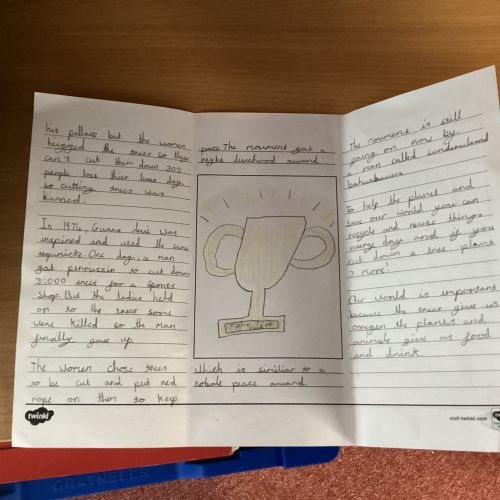 his pallace but the women
hugged the trees so they
can't cut them down 300
people lost thier lives
so cutting trees was
banned.
In 1974, Guara Devi was
inspired and used the same
One day, a man
got permission to cut down
3,000 trees for a sports
shop. But the ladies held
on to the trees some
were killed so the man
finally gave up.
The women chose trees
to be cut and put red
rope on them to keep
twinkl
peace. The movment got a
right livelihood award
which is similiar to a
nobole peace award
The movment is still
going on now by
a man called
To help the planet and
save our world you can
recycle and reuse things
every day and if you
cut down a tree plant
3 more!
Our world is important
because the trees give us
oxygen the plants and
animals give us food
and drink.
visit twinkl.com
GRATNELLS